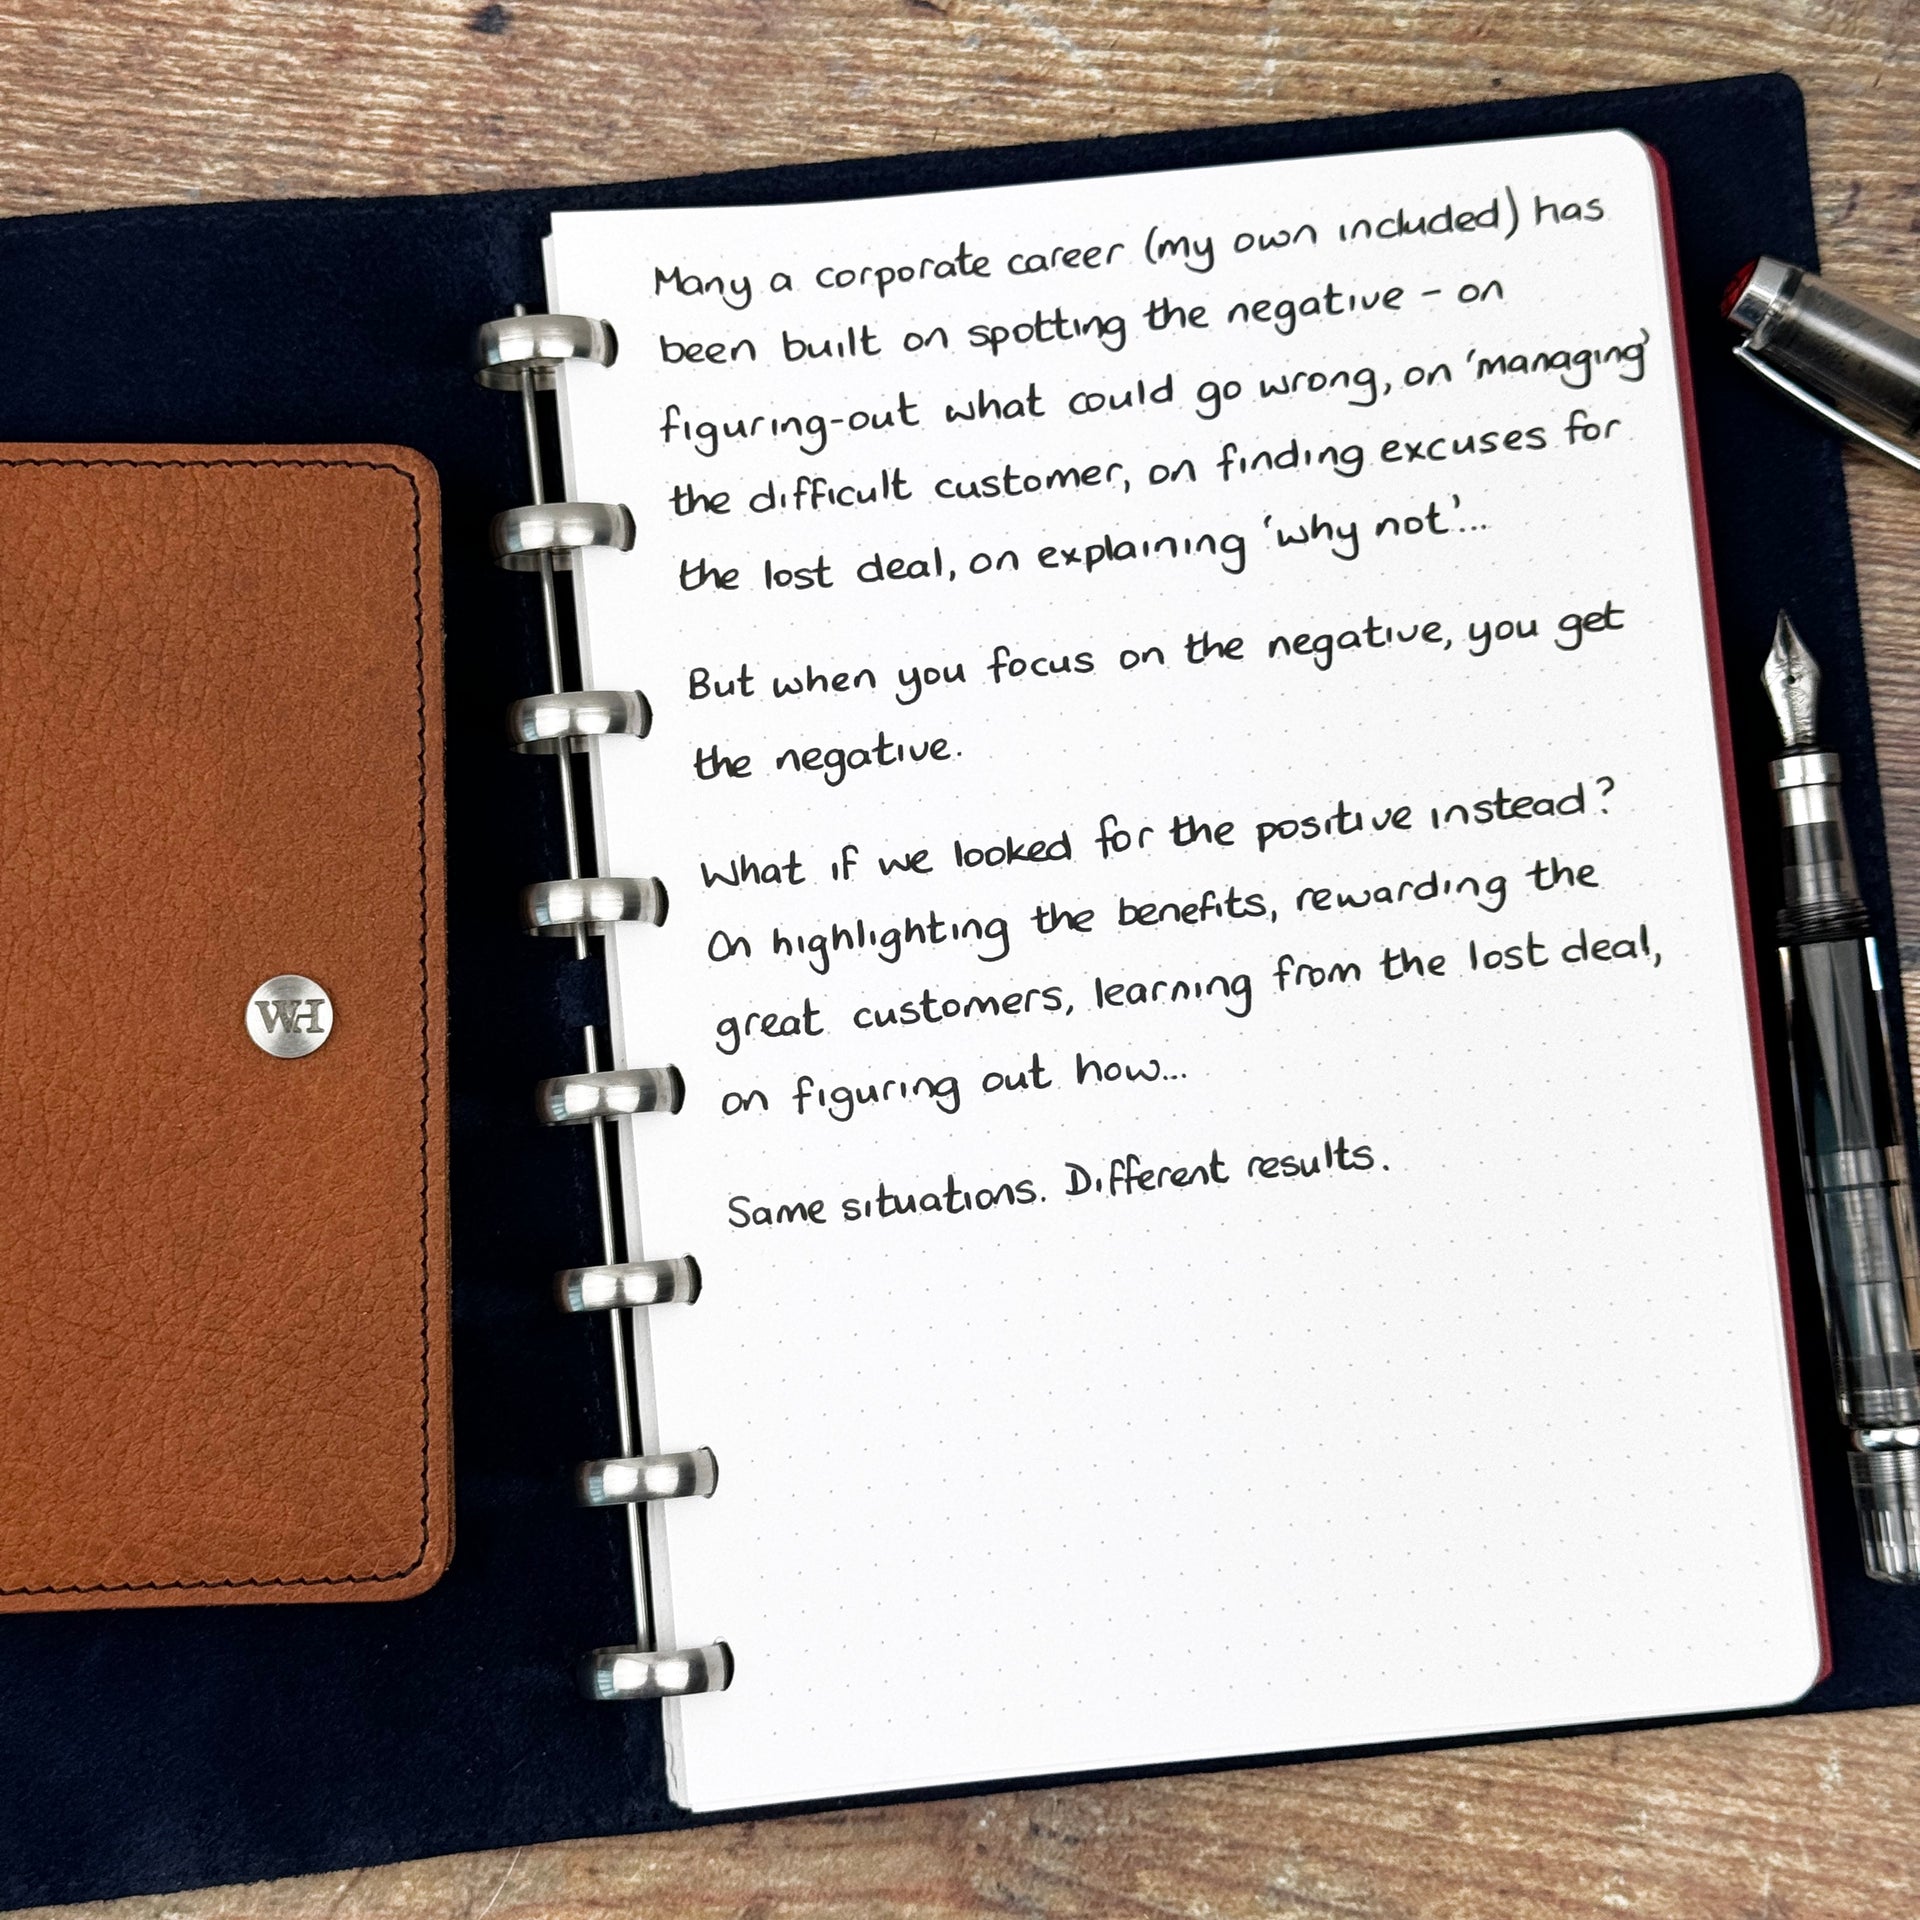 Many a corporate career (my own included) has
been built on spotting the negative - on
figuring-out what could go wrong, on 'managing'
the difficult customer, on finding excuses for
the lost deal, on explaining 'why not'...
But when you focus on the negative, you get
the negative.
What if we looked for the positive instead?
On highlighting the benefits, rewarding the
great customers, learning from the lost deal,
on figuring out how...
Same situations. Different results.
WH